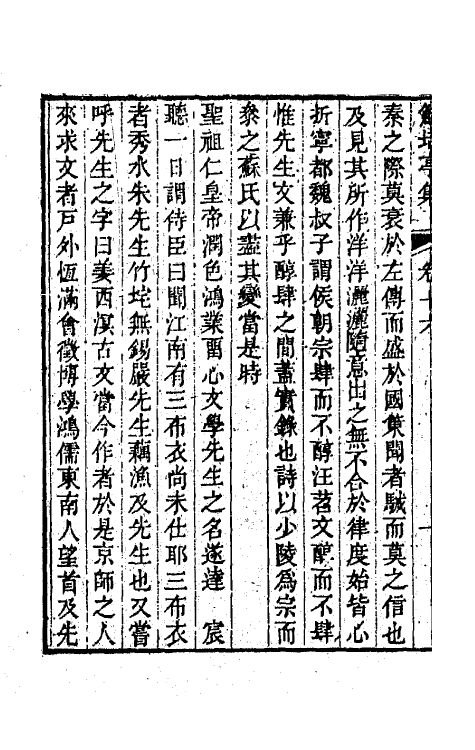 鮚埼亭集　卷十六
秦之際莫衰於左傳而盛於國策聞者駴而莫之信也
及見其所作洋洋灑灑隨意出之無不合於律度始皆心
折寧都魏叔子謂侯朝宗肆而不醇汪苕文醇而不肆
惟先生文兼乎醇肆之間蓋實錄也詩以少陵爲宗而
參之蘇氏以盡其變當是時
聖祖仁皇帝潤色鴻業畱心文學先生之名遂達　宸
聽一日謂侍臣曰聞江南有三布衣尚未仕耶三布衣
者秀水朱先生竹垞無錫嚴先生藕漁及先生也又嘗
呼先生之字曰姜西溟古文當今作者於是京師之人
來求文者戸外恆滿會徵博學鴻儒東南人望首及先